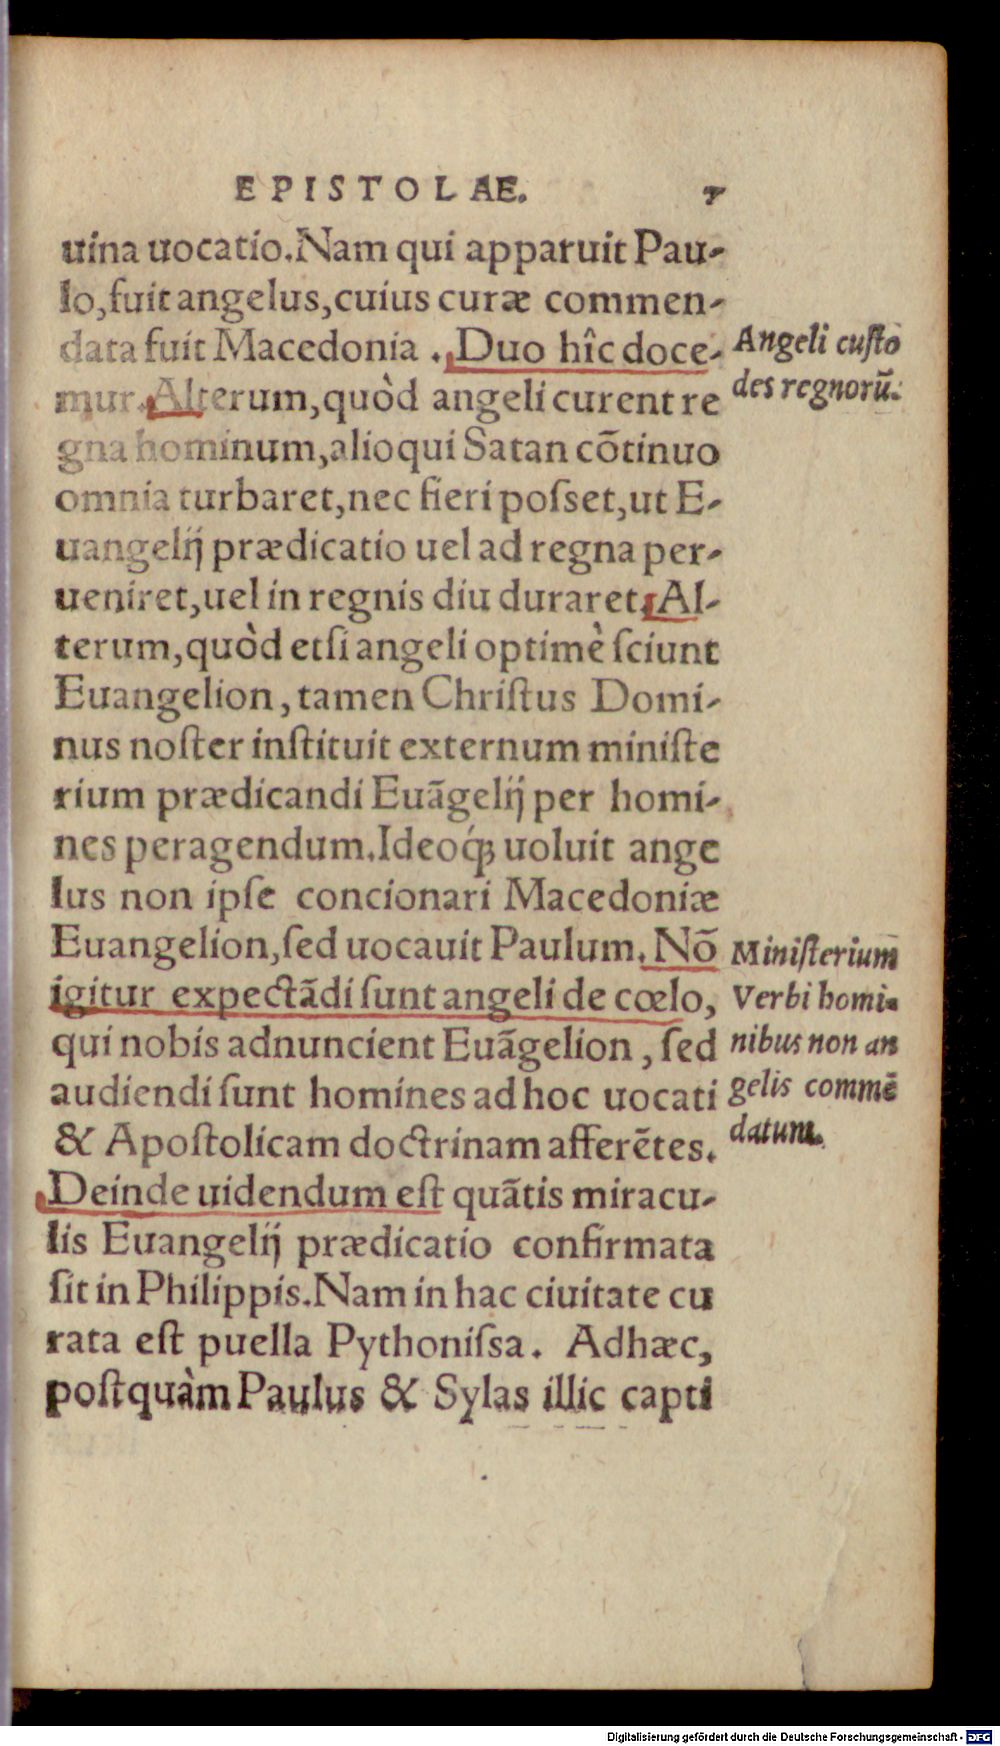 EPISTOLAE.
uina uocatio.Nam qui apparuit Pau-
lo,fuit angelus,cuius curæ commen-
data fuit Macedonia . Duo hîc doce-
mur. Alterum,quòd angeli curent re
gna hominum,alioqui Satan cõtinuo
omnia turbaret,nec fieri poſset,ut E-
uangelij prædicatio uel ad regna per-
ueniret,uel in regnis diu duraret. Al-
terum,quòd etſi angeli optimè ſciunt
Euangelion, tamen Chriſtus Domi-
nus noſter inſtituit externum miniſte
rium prædicandi Euãgelij per homi-
nes peragendum.Ideoq́; uoluit ange
lus non ipſe concionari Macedoniæ
Euangelion,ſed uocauit Paulum. Nõ
igitur expectãdi ſunt angeli de cœlo,
qui nobis adnuncient Euãgelion, ſed
audiendi ſunt homines ad hoc uocati
& Apoſtolicam doctrinam afferẽtes.
Deinde uidendum eſt quãtis miracu-
lis Euangelij prædicatio confirmata
ſit in Philippis.Nam in hac ciuitate cu
rata eſt puella Pythoniſsa. Adhæc,
poſtquàm Paulus & Sylas illic capti
Angeli cuſto
des regnorũ.
Miniſterium
Verbi homi-
nibus non an
gelis commẽ
datum.
Digitalisierung gefördert durch die Deutsche Forschungsgemeinschaft - DFG